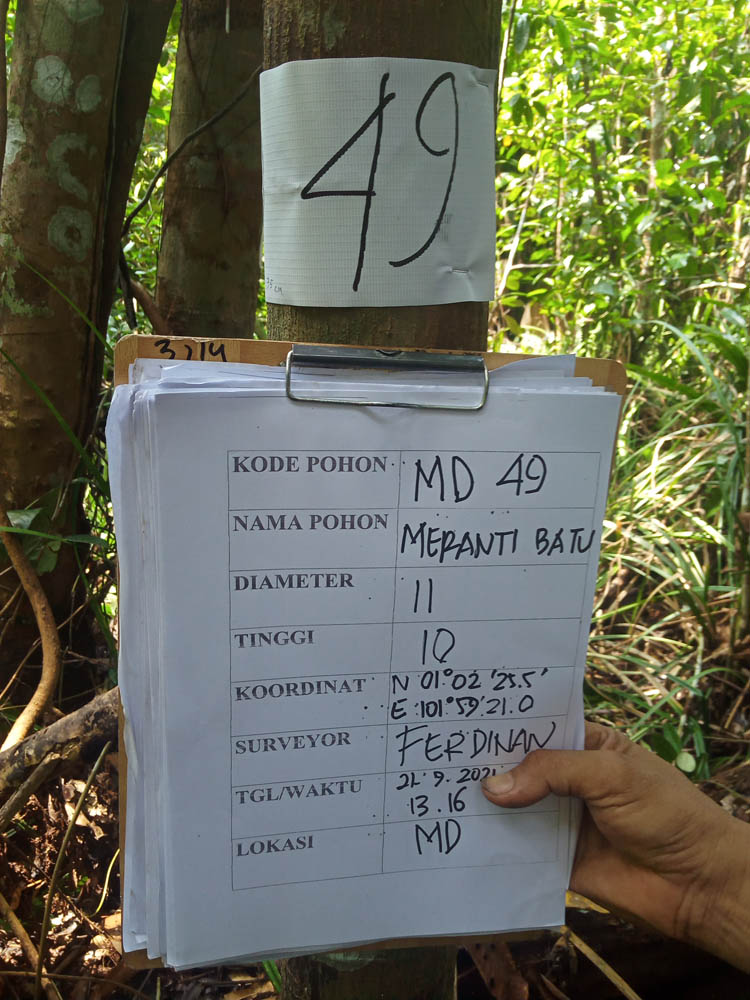 49
35 CM
3214
KODE POHON MD 49
NAMA POHON MERANTI BATU
DIAMETER 11
TINGGI 10
KOORDINAT N 01°02'25.5'
E 101°59'21.0
SURVEYOR FERDINAN
TGL/WAKTU 21.9.2021
13.16
LOKASI MD